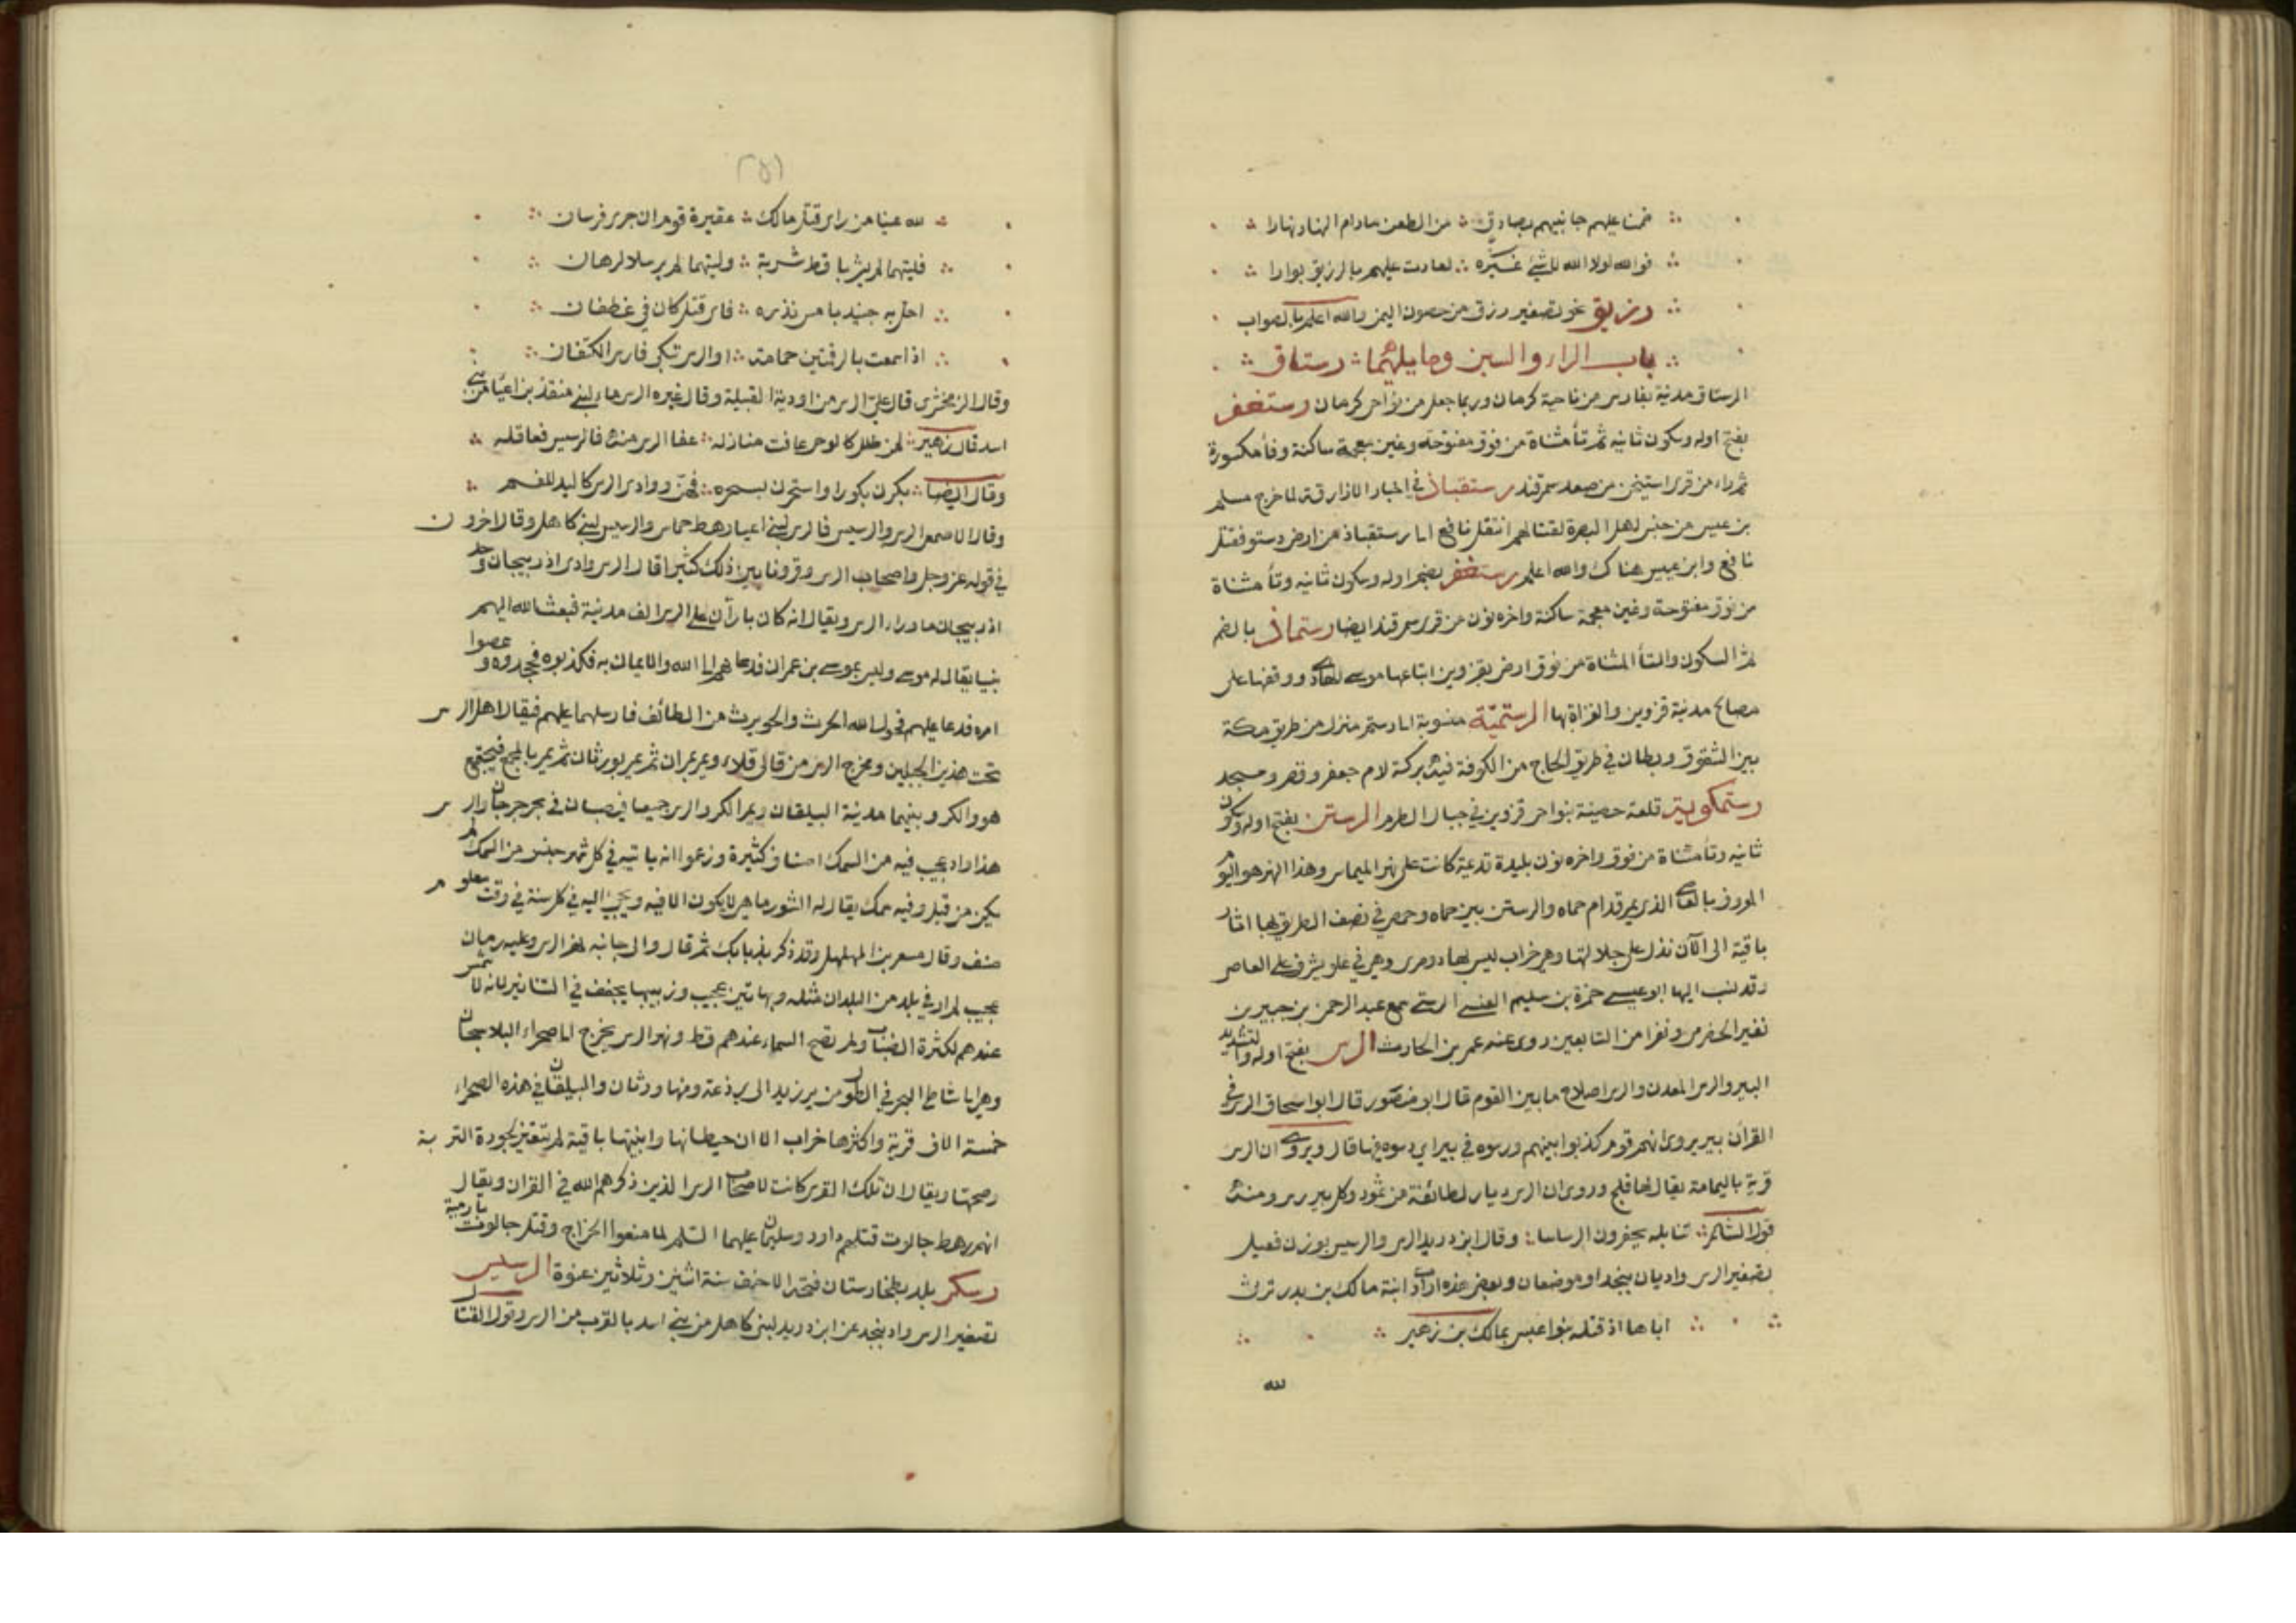 فمنا عليهم جانبيهم بصادق من الطعن مادام النهار نهارا
فوالله لولا الله لا شيء غيره لعادت عليهم بالرزيق بوارا
رزيق نحو تصغير رزق من حصون اليمن والله اعلم بالصواب
باب الراء والسين وما يليهما رستاق
الرستاق مدينة بفارس من ناحية كرمان وربما جعل من نواحي كرمان رستغفر
بفتح اوله وسكون ثانيه ثم تأ مثناة من فوق مفتوحة وغين معجمة ساكنة وفأ مكسورة
ثم راء من قرى اشتيخن من صغد سمرقند رستقباذ في اخبار الازارقة لما خرج مسلم
بن عبيس من حبس لاهل البصرة لقتالهم انتقل نافع الى رستقباذ من ارض دستو فقتل
نافع وابن عبيس هناك والله اعلم رستغفن بضم اوله وسكون ثانيه وتأ مثناة
من فوق مفتوحة وغين معجمة ساكنة واخره نون من قرى سمرقند ايضا رستماذ بالضم
ثم السكون والتأ المثناة من فوق ارض بقزوين ابتاعها موسى الهادي ووقفها على
مصالح مدينة قزوين والغزاة بها الرستمية منسوبة الى رستم منزل من طريق مكة
بين الشقوق وبطان في طريق الحاج من الكوفة فيه بركة لام جعفر وقصر ومسجد
رستمكوية قلعة حصينة بنواحي قزوين في جبال الطرم الرستن بفتح اوله وسكون
ثانيه وتأ مثناة من فوق واخره نون بليدة قديمة كانت على نهر الميماس وهذا النهر هو اليوم
المعروف بالعاصي الذي يمر قدام حماه والرستن بين حماه وحمص في نصف الطريق بها اثار
باقية الى الآن تدل على جلالتها وهي خراب ليس بها ذو مرى وهي في علو يشرف على العاصي
وقد نسب اليها ابو عيسى حمزة بن سليم العنسي الرستني سمع عبد الرحمن بن جبير بن
نفير الحضرمي ونفرا من التابعين روى عنه عمر بن الحارث الرس بفتح اوله والتشديد
البير والرس المعدن والرس اصلاح ما بين القوم قال ابو منصور قال ابو اسحاق الرس في
القرآن بير يروى انهم قوم كذبوا بنبيهم ورسوه في بير اي دسوه فيها قال ويروى ان الرس
قرية باليمامة يقال لها فلج وروى ان الرس ديار لطائفة من ثمود وكل بير رس ومنه
قول الشاعر تنابلة يحفرون الرساسا وقال ابن دريد الرس والرسيس بوزن فعيل
بتصغير الرس واديان بنجد او موضعان وبعض هذه ارادت ابنة مالك بن بدر ترثي
اباها اذ قتله بنوا عبس بمالك بن زهير
لله
(٢٥١)
لله عينا من راى قتل مالك عقيرة قوم ان جرى فرسان
فليتهما لم يشربا قط شربة وليتهما لم يرسلا لرهان
احل به جنيدبا مس نذره فاي قتيل كان في غطفان
اذا سمعت بالرقمتين حمامة او الرس تبكي فارس الكتفان
وقال الزمخشري قال علي الرس من اودية القبلية وقال غيره الرس ماء لبني منقذ بن اعيا من بني
اسد قال زهير لمن طلل كالوحي عافت منازله عفا الرس منه فالرسيس فعاقله
وقال ايضا بكرن بكورا واستحرن بسحره فهن ووادي الرس كاليد للفم
وقال الاصمعي الرس والرسيس فالرس لبني اعيا رهط حماس والرسيس لبني كاهل وقال اخرون
في قوله عز وجل واصحاب الرس وقرونا بين ذلك كثيرا قال الرس وادي اذربيجان وحد
اذربيجان ما وراء الرس ويقال انه كان بارآن على الرس الف مدينة فبعث الله اليهم
نبيا يقال له موسى وليس بموسى بن عمران فدعاهم الى الله والايمان به فكذبوه وجحدوه وعصوا
امره فدعا عليهم فحول الله الحرث والحويرث من الطائف فارسلهما عليهم فيقال اهل الرس
تحت هذين الجبلين ومخرج الرس من قالي قلاء ويمر بران ثم يمر بورثان ثم يمر بالمجمع فيجتمع
هو والكر وبينهما مدينة البيلقان ويمر الكر والرس جميعا فيصبان في بحر جرجان والرس
هذا واد عجيب فيه من السمك اصناف كثيرة وزعموا انه ياتيه في كل شهر جنس من السمك لم
يكن من قبل وفيه سمك يقال له الشورماهي لا يكون الا فيه ويجئ اليه في كل سنة في وقت معلوم
صنف وقال مسعر بن المهلهل وقد ذكر بذ بابك ثم قال والى جانبه نهر الرس وعليه رمان
عجيب لم ار في بلد من البلدان مثله وبها تين عجيب وزبيبها يجفف في التنانير لانه لا شمس
عندهم لكثرة الضباب ولم تصح السماء عندهم قط ونهر الرس يخرج الى صحراء البلاسجان
وهي الى شاطئ البحر في الطول من برزند الى برذعة ومنها ورثان والبيلقان في هذه الصحراء
خمسة الاف قرية واكثرها خراب الا ان حيطانها وابنيتها باقية لم تتغير لجودة التربة
وصحتها ويقال ان تلك القرى كانت لاصحاب الرس الذين ذكرهم الله في القران ويقال
انهم رهط جالوت قتلهم داود وسليمان عليهما السلم لما منعوا الخراج وقتل جالوت بارمية
رسكر بلد بطخارستان فتحه الاحنف سنة اثنين وثلاثين عنوة الرسيس
تصغير الرس واد بنجد عن ابن دريد لبني كاهل من بني اسد بالقرب من الرس وقول القتال